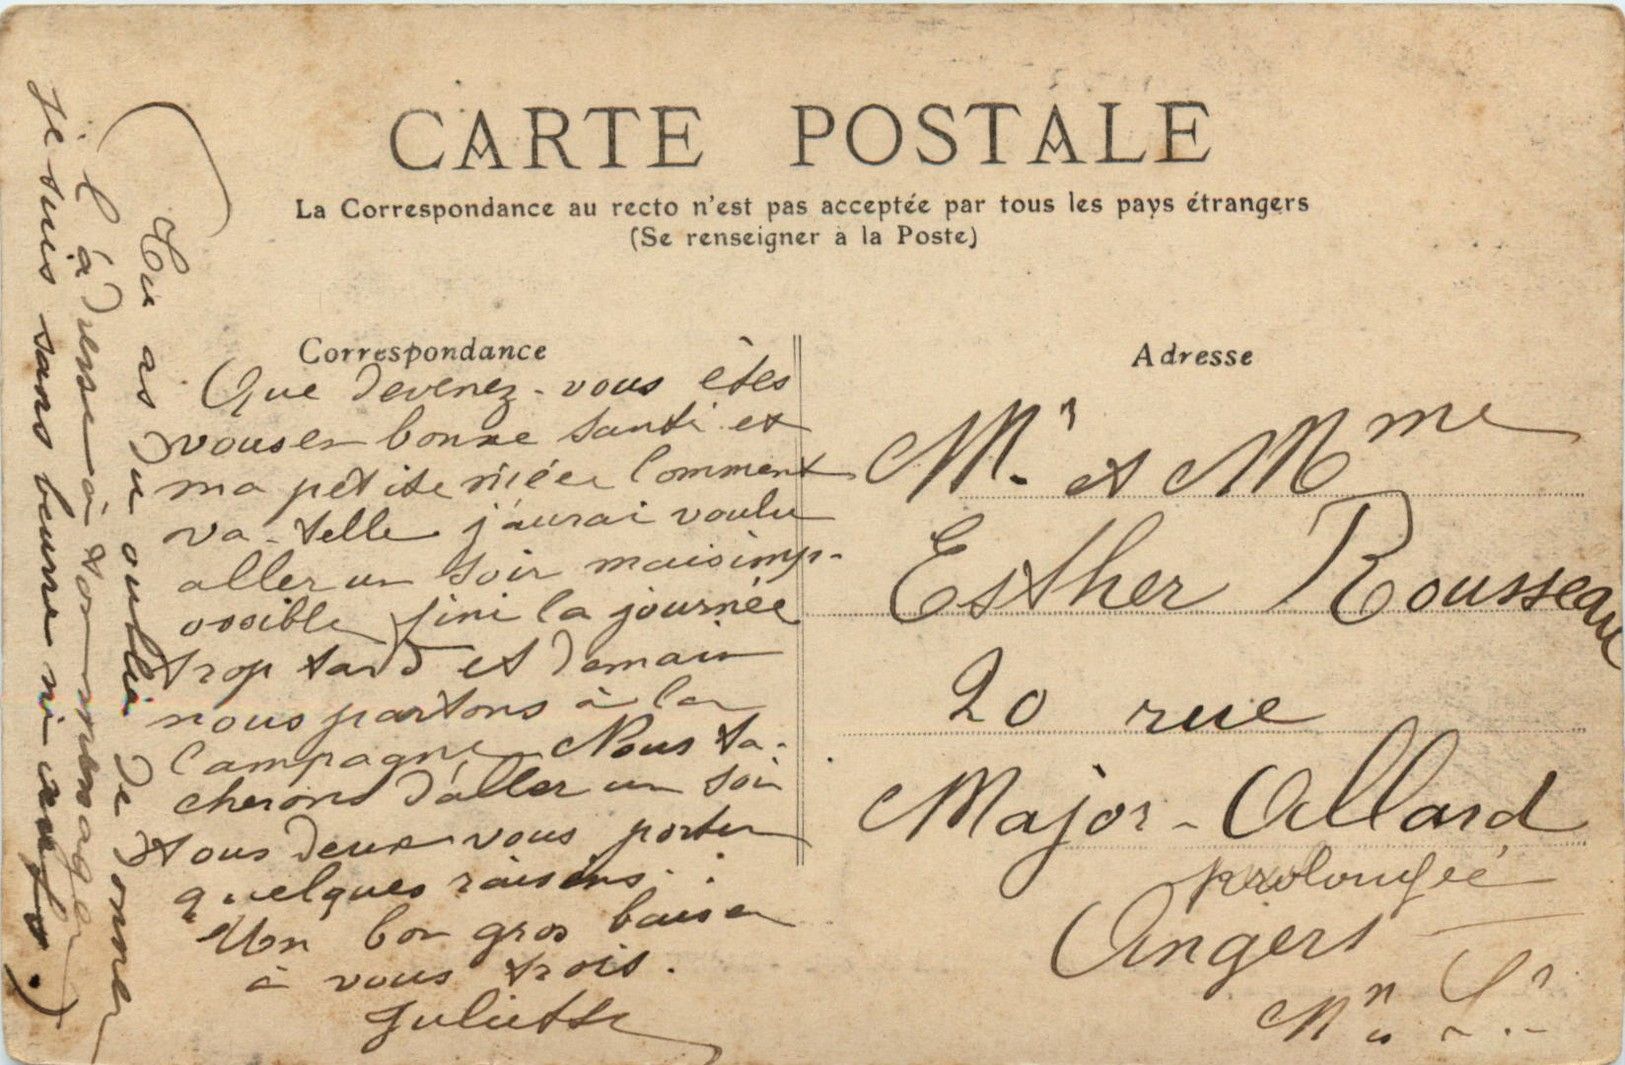 CARTE POSTALE
La Correspondance au recto n'est pas acceptée par tous les pays étrangers
(Se renseigner à la Poste)
Correspondance
Que devenez-vous êtes
vous en bonne santé et
ma petite nièce Comment
va-telle j'aurai voulu
aller un soir mais imp-
ossible fini la journée
trop tard et demain
nous partons à la
Campagne Nous ta-
cherons d'aller un soir
tous deux vous porter
quelques raisins.
Mon bon gros baiser
à vous trois.
Juliette
(Tu as du oublié de donner
l'adresse à ton ménager
je suis sans beurre ni œufs.)
Adresse
Mr. et Mme
Esther Rousseau
20 rue
Major-Allard
prolongée
Angers